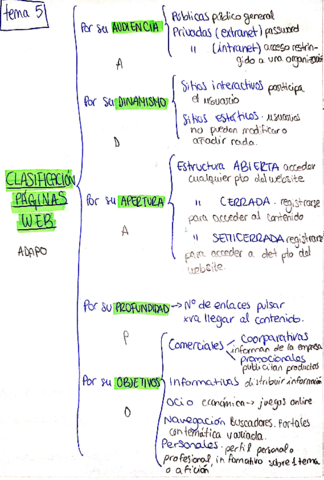 tema 5
CLASIFICACIÓN
PÁGINAS
WEB
ADAPO
Por su AUDIENCIA
A
Públicas público general
Privadas (extranet) password
" (intranet) acceso restrin-
gido a una organización
Por su DINAMISMO
D
Sitios interactivos participa
el usuario
Sitios estáticos. usuarios
no pueden modificar o
añadir nada.
Por su APERTURA
A
Estructura ABIERTA acceder
cualquier pto del website
" CERRADA. registrarse
para acceder al contenido
" SEMICERRADA registrarse
para acceder a det pto del
website.
Por su PROFUNDIDAD → Nº de enlaces pulsar
xra llegar al contenido.
P
Por su OBJETIVOS
O
Comerciales coorporativas
informan de la empresa
promocionales
publicitan productos
Informativas distribuir información
Ocio económica → juegos online
Navegación Buscadores. Portales
con temática variada.
Personales. perfil personal o
profesional, informativo sobre 1 tema
o afición.